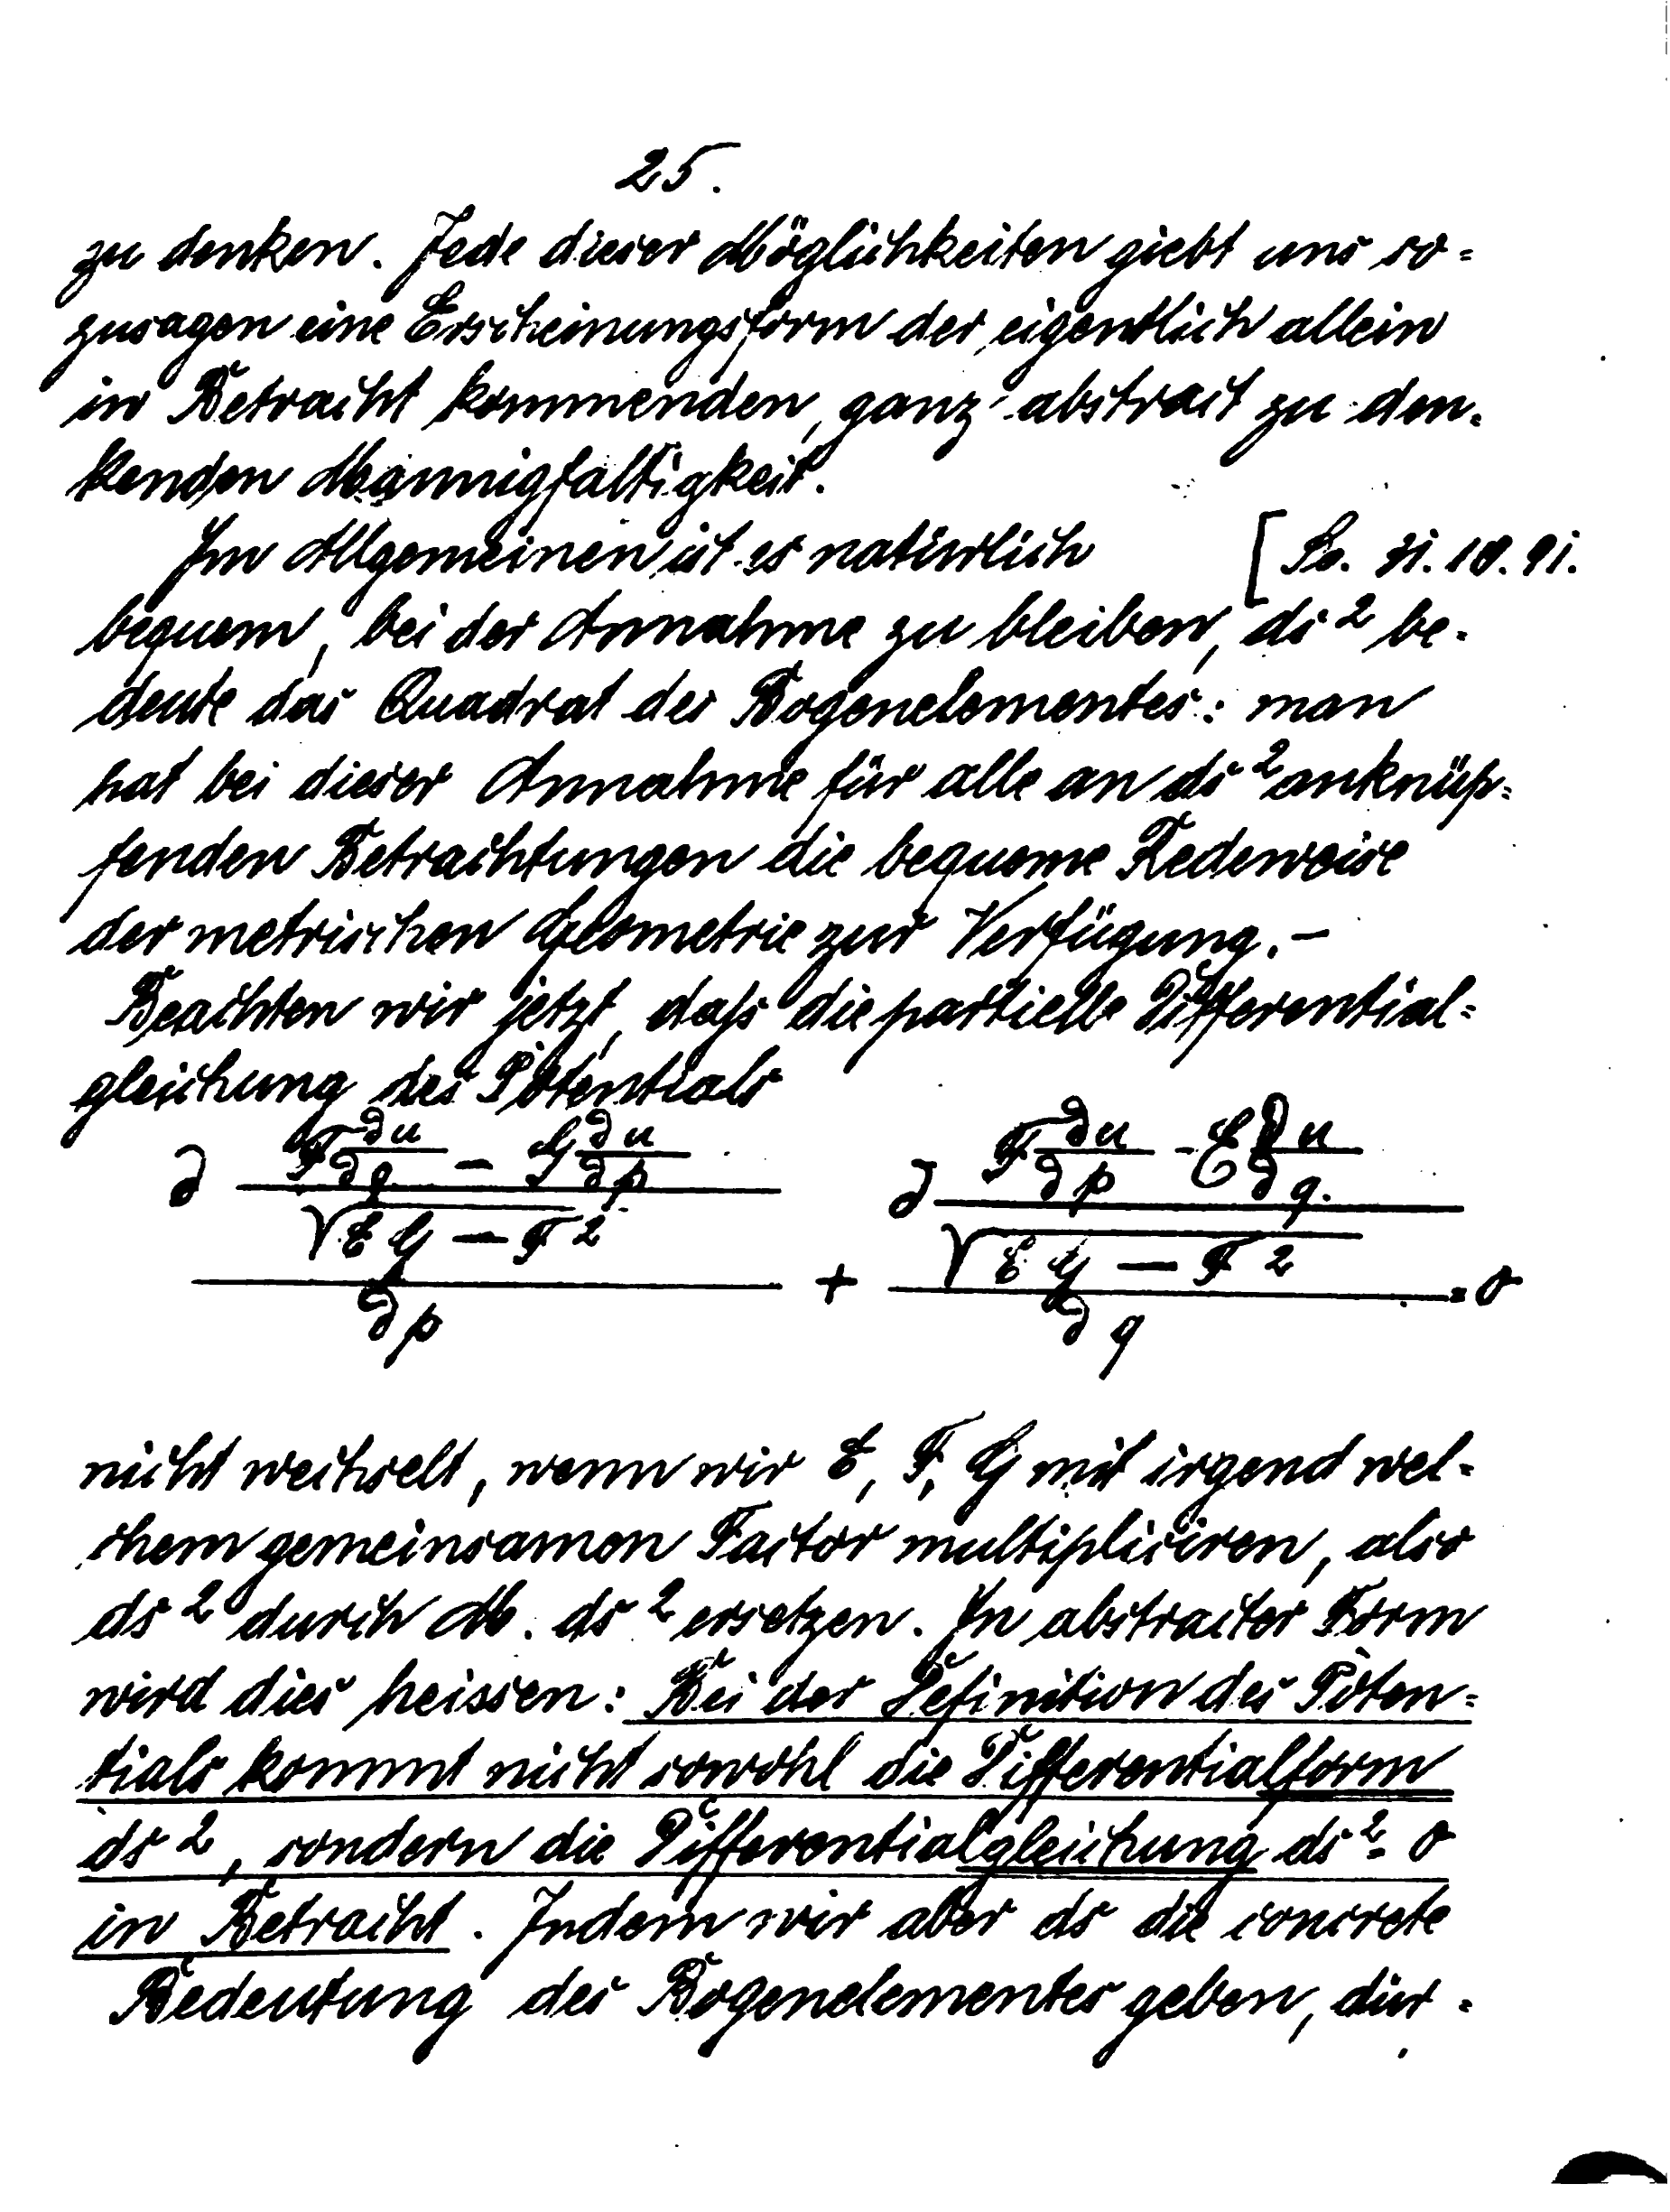 25.
zu denken. Jede dieser Möglichkeiten giebt uns so=
zusagen eine Erscheinungsform der eigentlich allein
in Betracht kommenden, ganz abstract zu den-
kenden Mannigfaltigkeit.
Im Allgemeinen ist es natürlich [So. 31.10.91.
bequem, bei der Annahme zu bleiben, ds² be-
deute das Quadrat des Bogenelementes: man
hat bei dieser Annahme für alle an ds² anknüp=
fenden Betrachtungen die bequeme Redeweise
der metrischen Geometrie zur Verfügung. —
Beachten wir jetzt, daſs die partielle Differential=
gleichung des Potentials
∂ (F ∂u/∂q − G ∂u/∂p)/√(EG − F²) / ∂p + ∂ (F ∂u/∂p − E ∂u/∂q.)/√(EG − F²) / ∂q = 0
nicht wechselt, wenn wir E, F, G mit irgend wel-
chem gemeinsamen Factor multipliciren, also
ds² durch M. ds² ersetzen. In abstracter Form
wird dies heissen: Bei der Definition des Poten=
tials kommt nicht sowohl die Differentialform
ds², sondern die Differentialgleichung ds² = 0
in Betracht. Indem wir aber ds die concrete
Bedeutung des Bogenelementes geben, dür-